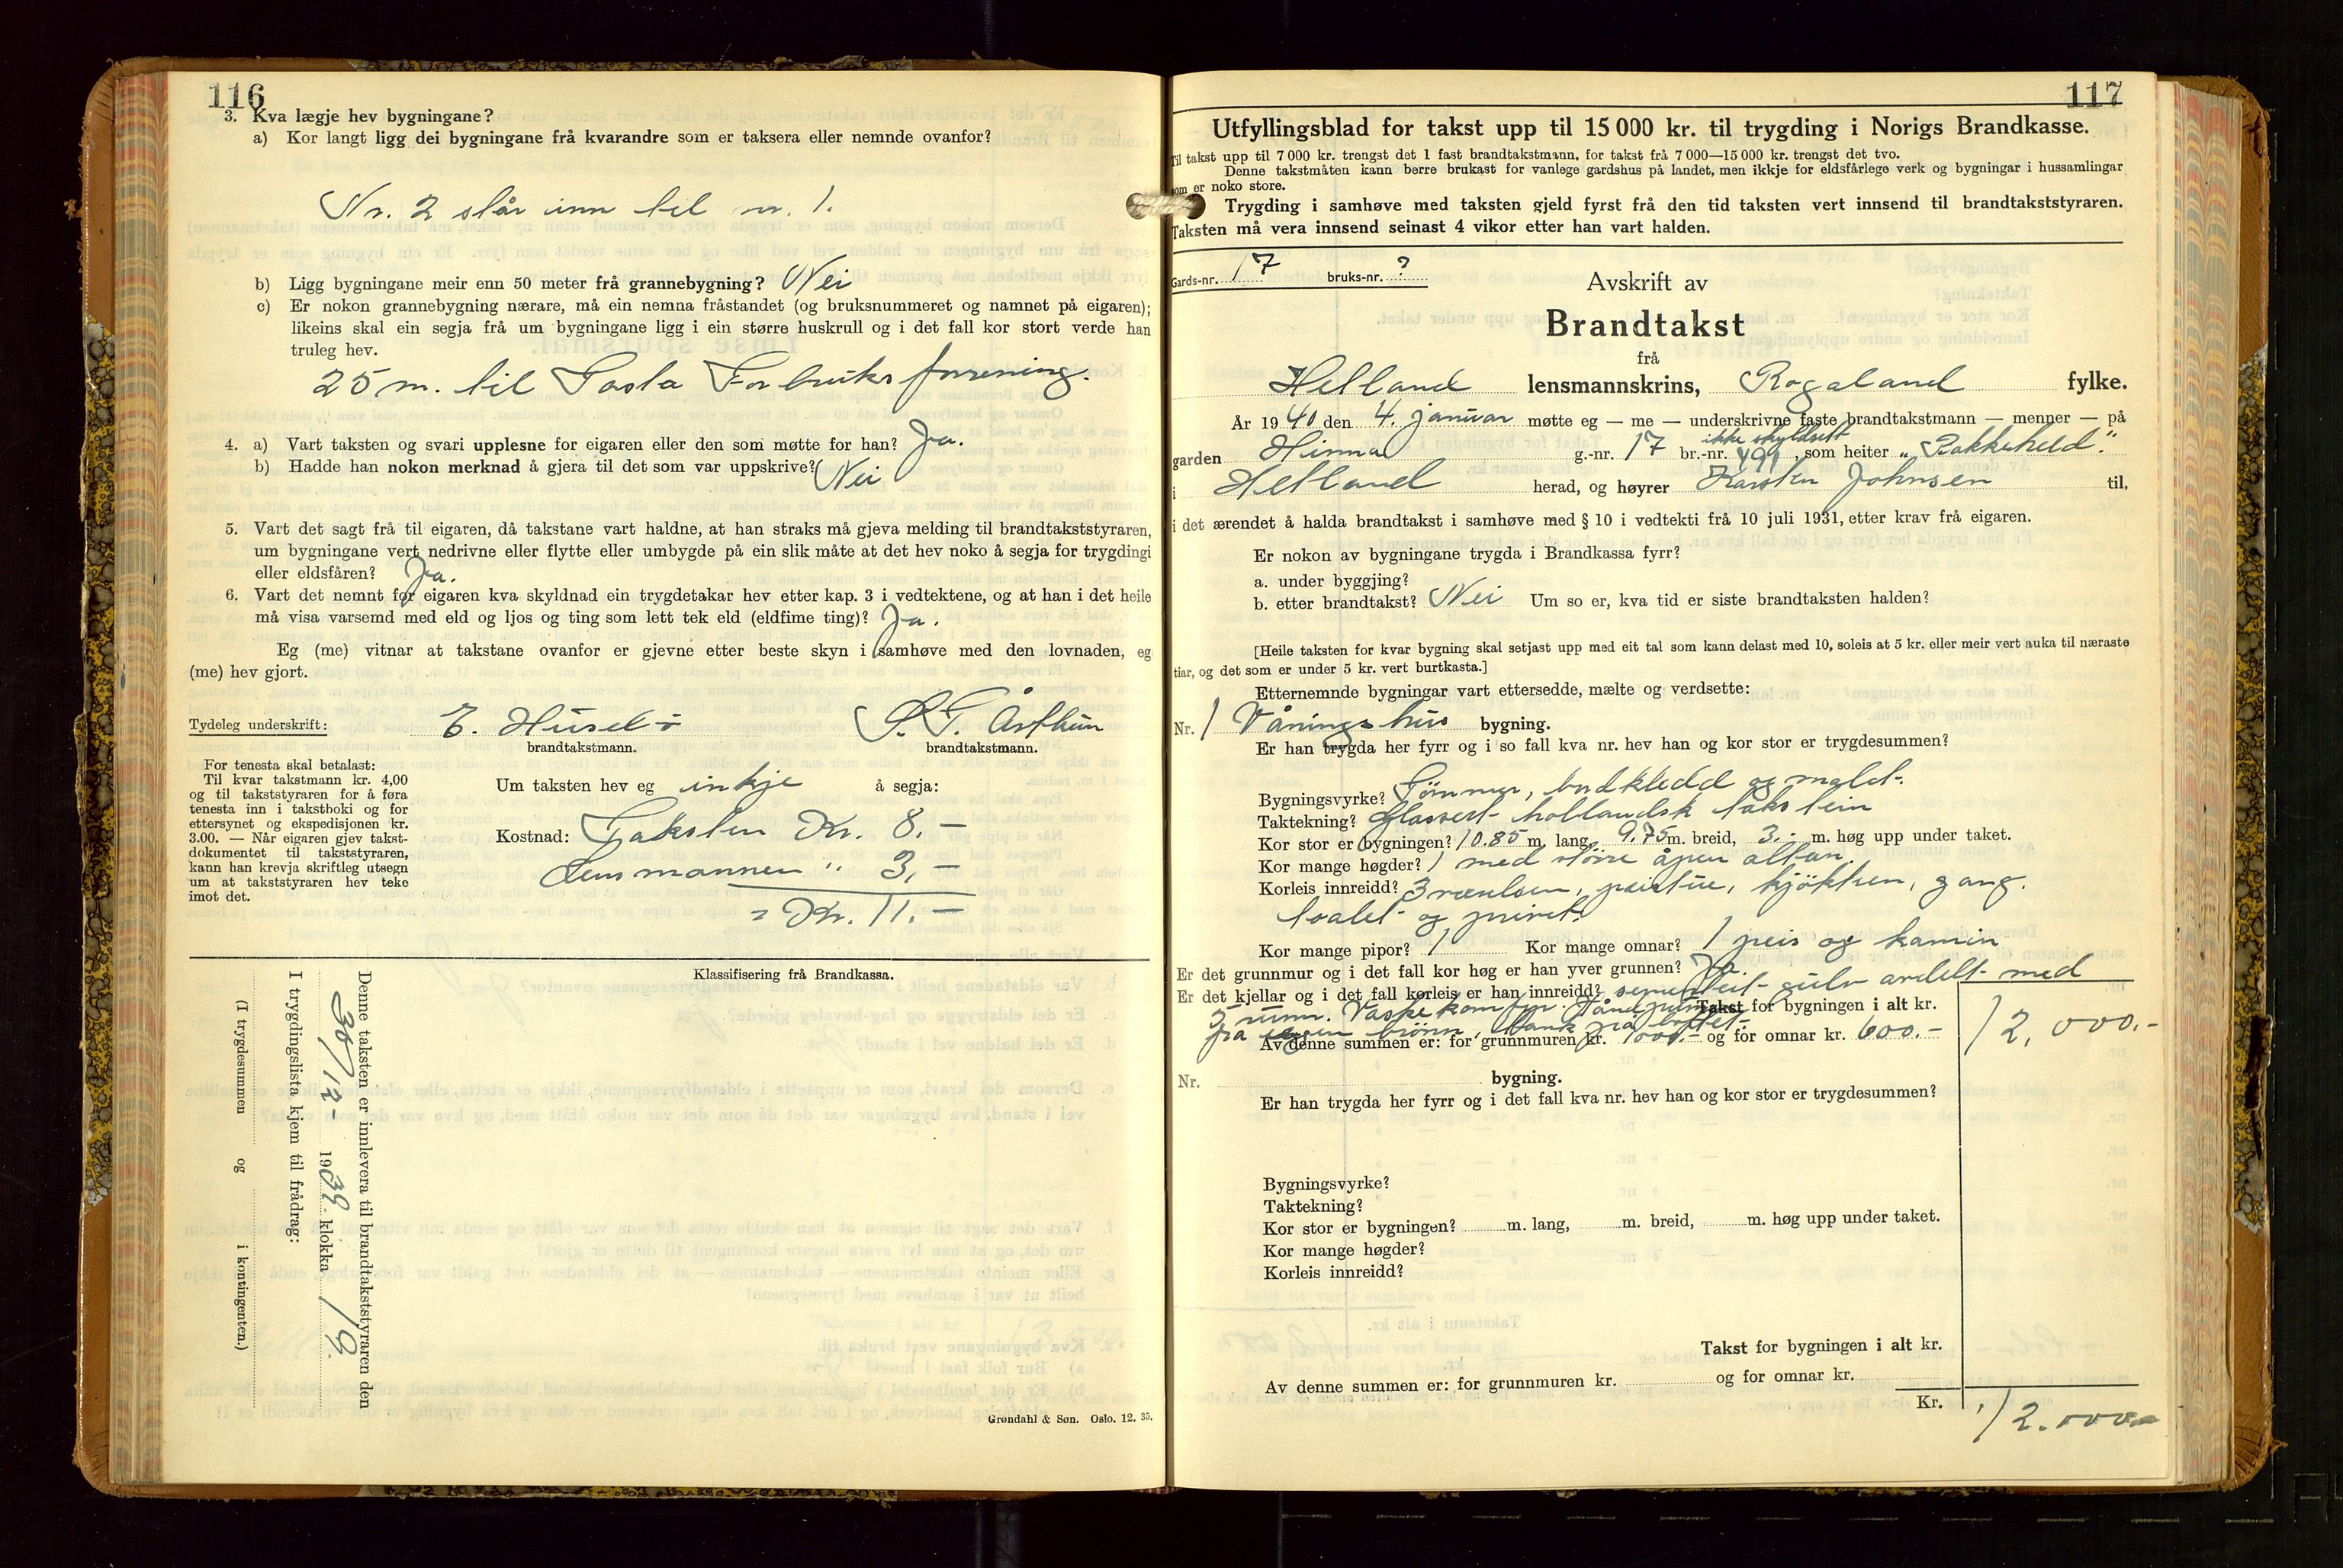 116
3. Kva lægje hev bygningane?
a) Kor langt ligg dei bygningane frå kvarandre som er taksera eller nemnde ovanfor?
Nr. 2 slår inn til nr. 1.
b) Ligg bygningane meir enn 50 meter frå grannebygning? Nei
c) Er nokon grannebygning nærare, må ein nemna fråstandet (og bruksnummeret og namnet på eigaren);
likeins skal ein segja frå um bygningane ligg i ein større huskrull og i det fall kor stort verde han
truleg hev.
25 m. til Tasta Forbruksforening.
4. a) Vart taksten og svari upplesne for eigaren eller den som møtte for han? Ja.
b) Hadde han nokon merknad å gjera til det som var uppskrive? Nei
5. Vart det sagt frå til eigaren, då takstane vart haldne, at han straks må gjeva melding til brandtakststyraren,
um bygningane vert nedrivne eller flytte eller umbygde på ein slik måte at det hev noko å segja for trygdingi
eller eldsfåren? Ja.
6. Vart det nemnt for eigaren kva skyldnad ein trygdetakar hev etter kap. 3 i vedtektene, og at han i det heile
må visa varsemd med eld og ljos og ting som lett tek eld (eldfime ting)? Ja.
Eg (me) vitnar at takstane ovanfor er gjevne etter beste skyn i samhøve med den lovnaden, eg
(me) hev gjort.
Tydeleg underskrift: E. Husebø
brandtakstmann. brandtakstmann.
For tenesta skal betalast:
Til kvar takstmann kr. 4,00
og til takststyraren for å føra
tenesta inn i takstboki og for
ettersynet og ekspedisjonen kr.
3.00. — Når eigaren gjev takst-
dokumentet til takststyraren,
kann han krevja skriftleg utsegn
um at takststyraren hev teke
imot det.
Um taksten hev eg inkje å segja:
Kostnad: Taksten Kr. 8.-
Lensmannen " 3,-
= Kr. 11.-
Klassifisering frå Brandkassa.
Denne taksten er innlevera til brandtakststyraren den
30/12- 1939. klokka 19.
I trygdingslista kjem til frådrag:
(I trygdesummen og i kontingenten.)
Grøndahl & Søn. Oslo. 12. 35.
117
Utfyllingsblad for takst upp til 15 000 kr. til trygding i Norigs Brandkasse.
Til takst upp til 7 000 kr. trengst det 1 fast brandtakstmann, for takst frå 7 000—15 000 kr. trengst det tvo.
Denne takstmåten kann berre brukast for vanlege gardshus på landet, men ikkje for eldsfårlege verk og bygningar i hussamlingar
som er noko store.
Trygding i samhøve med taksten gjeld fyrst frå den tid taksten vert innsend til brandtakststyraren.
Taksten må vera innsend seinast 4 vikor etter han vart halden.
Gards-nr. 17 bruks-nr. ?
Avskrift av
Brandtakst
frå
Hetland lensmannskrins, Rogaland fylke.
År 1940 den 4. januar møtte eg — me — underskrivne faste brandtakstmann — menner — på
ikke skyldsett
garden Hinna g.-nr. 17 br.-nr. 499, som heiter „Bakkeheld".
i Hetland herad, og høyrer Karsten Johnsen til,
i det ærendet å halda brandtakst i samhøve med § 10 i vedtekti frå 10 juli 1931, etter krav frå eigaren.
Er nokon av bygningane trygda i Brandkassa fyrr?
a. under byggjing?
b. etter brandtakst? Nei Um so er, kva tid er siste brandtaksten halden?
[Heile taksten for kvar bygning skal setjast upp med eit tal som kann delast med 10, soleis at 5 kr. eller meir vert auka til næraste
tiar, og det som er under 5 kr. vert burtkasta.]
Etternemnde bygningar vart ettersedde, mælte og verdsette:
Nr. 1 Våningshus bygning.
Er han trygda her fyrr og i so fall kva nr. hev han og kor stor er trygdesummen?
Bygningsvyrke? Tömmer, bordkledd og malet.
Taktekning? Glassert hollandsk takstein
Kor stor er bygningen? 10.85 m. lang, 9.75 m. breid, 3.- m. høg upp under taket.
Kor mange høgder? 1 med större åpen altan.
Korleis innreidd? 3 værelser, peistue, kjökken, gang.
toalet og privet.
Kor mange pipor? 1 Kor mange omnar? 1 peis og kamin
Er det grunnmur og i det fall kor høg er han yver grunnen? Ja.
Er det kjellar og i det fall korleis er han innreidd? sementert gulv avdelt med
3 rumm. Vaskekomfyr. Håndpumpe
Takst for bygningen i alt kr. 12,000.-
fra egen brönn, tank på loftet.
Av denne summen er: for grunnmuren kr. 1000.- og for omnar kr. 600.-
Nr. bygning.
Er han trygda her fyrr og i det fall kva nr. hev han og kor stor er trygdesummen?
Bygningsvyrke?
Taktekning?
Kor stor er bygningen? m. lang, m. breid, m. høg upp under taket.
Kor mange høgder?
Korleis innreidd?
Takst for bygningen i alt kr.
Av denne summen er: for grunnmuren kr. og for omnar kr.
Kr. 12.000.-